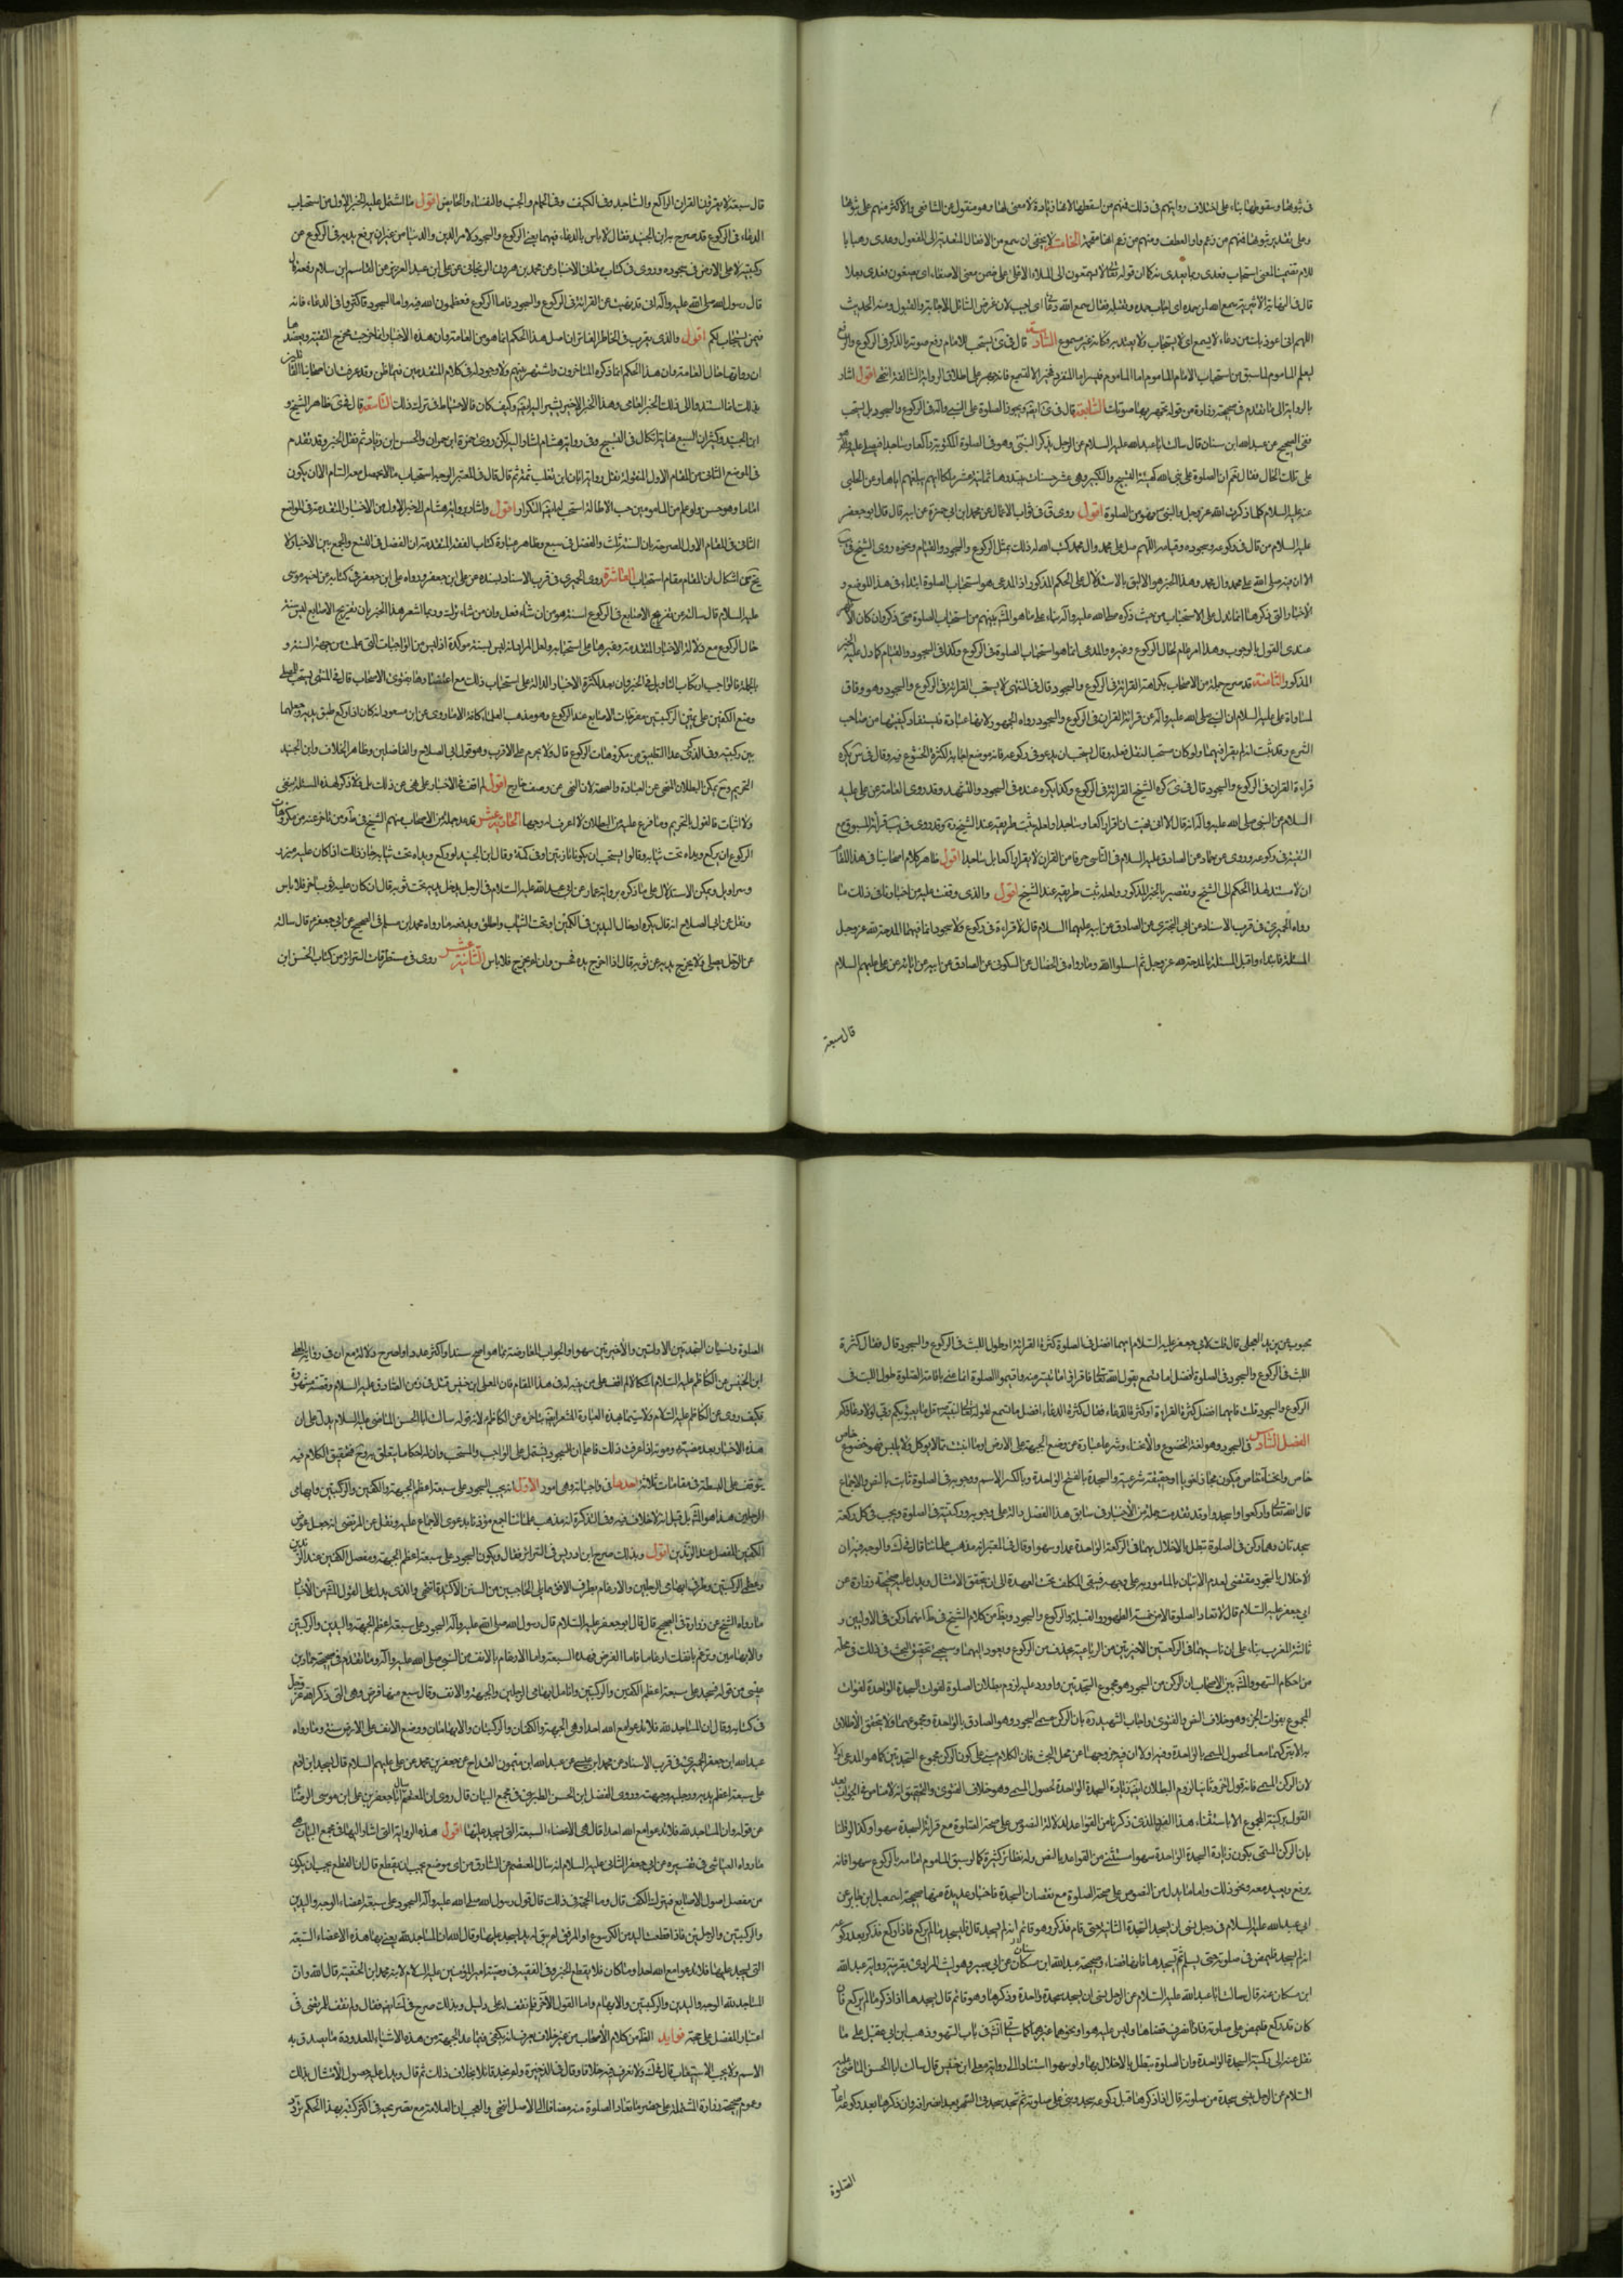 في ثبوتها وسقوطها بناء على اختلاف رواياتهم في ذلك فمنهم من اسقطها لانها زيادة لا معنى لها وهو منقول عن الشافعي والاكثر منهم على ثبوتها
وعلى تقدير ثبوتها فمنهم من زعم واو العطف ومنهم من زعم انها مقحمة الخامسة لا يخفى ان سمع من الافعال المتعدية الى المفعول وعدى وهنا باللام
قال في النهاية الاثيرية سمع الله لمن حمده اي اجاب حمده وتقبله يقال سمع الله دعائي اجيب لان غرض السائل الاجابة والقبول ومنه الحديث
اللهم اني اعوذ بك من دعاء لا يسمع اي لا يستجاب ولا يعتد به فكانه غير مسموع السادسة قال في يستحب للامام رفع صوته بالذكر في الركوع والرفع
ليعلم الماموم لما سبق من استحباب الامام الماموم اما الماموم فيسر اما المنفرد فمخير الا لتسميع فانه جهر على اطلاق الرواية السالفة انتهى اقول اشار
بالرواية الى ما تقدم في صحيحة زرارة من قوله تجهر بها صوتك السابعة قال في ايضا ويجوز الصلوة على النبي وآله في الركوع والسجود بل يستحب
ففي الصحيح عن عبد الله ابن سنان قال سالت ابا عبد الله عليه السلام عن الرجل يذكر النبي وهو في الصلوة المكتوبة راكعا وساجدا فيصلي عليه وهو
على تلك الحال فقال نعم ان الصلوة على نبي الله كهيئة التسبيح والتكبير وهي عشر حسنات يبتدرها ثمانية عشر ملكا ايهم يبلغهم اياها وعن الحلبي
عنه عليه السلام كلما ذكرت الله عز وجل والنبي فهو من الصلوة اقول روى في ثواب الاعمال عن محمد ابن ابي حمزة عن ابيه قال قال ابو جعفر
عليه السلام من قال في ركوعه وسجوده وقيامه اللهم صل على محمد وآل محمد كتب الله له ذلك بمثل الركوع والسجود والقيام ونحوه روى الشيخ في
الا ان فيه صلى الله على محمد وآل محمد وهذا الخبر هو الاليق بالاستدلال على الحكم المذكور اذ المدعى هو استحباب الصلوة ابتداء في هذا الموضع و
الاخبار التي ذكرها انما تدل على الاستحباب من حيث ذكره صلى الله عليه وآله بناء على ما هو المشهور بينهم من استحباب الصلوة متى ذكر وان كان الاظهر
عندي القول بالوجوب وهذا امر عام لحال الركوع وغيره والمدعى انما هو استحباب الصلوة في الركوع وكذا في السجود والقيام كما دل عليه الخبر
المذكور الثامنة قد صرح جملة من الاصحاب بكراهة القرائة في الركوع والسجود قال في المنتهى لا يستحب القرائة في الركوع والسجود وهو وفاق
لما رواه علي عليه السلام ان النبي صلى الله عليه وآله نهى عن قرائة القران في الركوع والسجود رواه الجمهور ولانها عبادة فيستفاد كيفيتها من صاحب
الشرع وقد ثبت انه لم يقرا فيهما ولو كان مستحبا لنقل فعله وقال يستحب ان يدعو في ركوعه فانه موضع اجابة لكثرة الخضوع فيه وقال في س يكره
قراءة القران في الركوع والسجود قال في كره الشيخ القرائة في الركوع وكذا يكره عنده في السجود والتشهد وقد روى العامة عن علي عليه
السلام عن النبي صلى الله عليه وآله انه قال الا اني نهيت ان اقرا راكعا وساجدا ولعله ثبت طريقه عند الشيخ ره وقد روى في قرائة المسبوق مع
التقية في ركوعه وروى عن عمار عن الصادق عليه السلام في الناسي حرفا من القران لا يقرا راكعا بل ساجدا اقول ظاهر كلام اصحابنا في هذا المقام
ان لا مستند لهذا الحكم الى الشيخ وتقصير بالخبر المذكور ولعله ثبت طريقه عند الشيخ اقول والذي وقفت عليه من اخبارنا في ذلك ما
رواه الحميري في قرب الاسناد عن ابي البختري عن الصادق عن ابيه عليهما السلام قال لا قراءة في ركوع ولا سجود انما فيهما المدحة لله عز وجل
المسئلة فابتدا واقبل المسئلة بالمدحة لله عز وجل ثم اسلوا الله وما رواه في الخصال عن السكوني عن الصادق عن ابيه عن ابائه عن علي عليهم السلام
قال سبعة
قال سبعة لا يقرؤن القران الراكع والساجد وفي الكنيف وفي الحمام والجنب والنفساء والحائض اقول ما اشتمل عليه الخبر الاول من استحباب
الدعاء في الركوع قد صرح به ابن الجنيد فقال لا باس بالدعاء فيهما يعني الركوع والسجود لامر الدين والدنيا من غير ان يرفع يديه في الركوع عن
ركبتيه ولا على الارض في سجوده وروى في كتاب معاني الاخبار عن محمد بن هرون الزنجاني عن علي ابن عبد العزيز عن القاسم ابن سلام رفعه قال
قال رسول الله صلى الله عليه وآله اني قد نهيت عن القرائة في الركوع والسجود فاما الركوع فعظموا الله فيه واما السجود فاكثروا في الدعاء فانه
قمن ان يستجاب لكم اقول والذي يقرب في الخاطر الفاتر ان اصل هذا الحكم انما هو من العامة وان هذه الاخبار انما خرجت مخرج التقية ويعضده
ان رواتها رجال العامة وان هذا الحكم انما ذكره المتاخرون واشتهر بينهم ولا وجود له في كلام المتقدمين فيما اظن وقد عرفت ان اصحابنا القائلين
بذلك انما استندوا الى ذلك الخبر العامي وهذا الخبر الاخير يشير اليه ايضا وكيف كان فالاحتياط في ترك ذلك التاسعة قال في ظاهر الشيخ و
ابن الجنيد وكثير ان السبع نهاية الكمال في التسبيح وفي رواية هشام اشار اليه لكن روى حمزة ابن حمران والحسن ابن زياد ثم نقل الخبر وقد تقدم
في الموضع الثاني من المقام الاول المنقولة نقل رواية ابان ابن تغلب ثمة ثم قال قال في المعتبر الوجه استحباب ما لا يحصل معه السام الا ان يكون
اماما وهو حسن ولو علم من المامومين حب الاطالة استحب له ايضا التكرار اقول واشار برواية هشام الى الخبر الاول من الاخبار المتقدمة في الموضع
الثاني في المقام الاول المصرحة بان السنة ثلث والفضل في سبع وظاهر عبارة كتاب الفقه المتقدمة ان الفضل في التسع والجمع بين الاخبار لا
يخ عن اشكال ان المقام مقام استحباب العاشرة روى الحميري في قرب الاسناد بسنده عن علي ابن جعفر ورواه علي ابن جعفر في كتابه عن اخيه موسى
عليه السلام قال سالته عن تفريج الاصابع في الركوع اسنة هو من ان شاء فعل وان من شاء ترك وربما اشعر هذا الخبر بان تفريج الاصابع ليس سنة
حال الركوع مع دلالة الاخبار المتقدمة وغيرها على استحبابه ولعل المراد انه ليس بسنة مؤكدة او ليس من الواجبات التي علمت من جهة السنة و
بالجملة فالواجب ارتكاب التاويل في الخبر وان بعد لكثرة الاخبار الدالة على استحباب ذلك مع اعتضادها بفتوى الاصحاب قال في المنتهى يستحب للمصلي
وضع الكفين على عيني الركبتين مفرجات الاصابع عند الركوع وهو مذهب العلماء كافة الا ما روى عن ابن مسعود انه كان اذا ركع طبق يديه وجعلهما
بين ركبتيه وفي الذكرى عد التطبيق من مكروهات الركوع قال ولا يحرم على الاقرب وهو قول ابي الصلاح والفاضلين وظاهر الخلاف وابن الجنيد
التحريم وح يمكن البطلان للنهي عن العبادة والصحة لان النهي عن وصف خارج اقول لم اقف في الاخبار على نهي عن ذلك بل ولا ذكر لهذه المسئلة بنفي
ولا اثبات فالقول بالتحريم وما فرع عليه من البطلان لا اعرف له وجها الحادية عشر قد عد جملة من الاصحاب منهم الشيخ في ط ومن تاخر عنه من مكروهات
الركوع ان يركع ويداه تحت ثيابه وقالوا يستحب ان يكونا بارزتين او في كمه وقال ابن الجنيد لو ركع ويداه تحت ثيابه جاز ذلك اذا كان عليه مئزر
وسراويل ويمكن الاستدلال على ما ذكره برواية عمار عن ابي عبد الله عليه السلام في الرجل يدخل يديه تحت ثوبه قال ان كان عليه ثوب اخر فلا باس
ونقل عن ابي الصلاح انه قال يكره ادخال اليدين في الكمين او تحت الثياب واطلق ويدفعه ما رواه محمد ابن مسلم في الصحيح عن ابي جعفر ع قال سالته
عن الرجل يصلي ولا يخرج يديه من ثوبه قال اذا اخرج يديه فحسن وان لم يخرج فلا باس الثانية عشر روى في مستطرفات السرائر من كتاب الحسن ابن
محبوب عن بريد العجلي قال قلت لابي جعفر عليه السلام ايهما افضل في الصلوة كثرة القرائة او طول اللبث في الركوع والسجود قال فقال كثرة
اللبث في الركوع والسجود في الصلوة افضل اما تسمع بقول الله تعالى فاقرؤا ما تيسر منه واقيموا الصلوة انما عنى باقامة الصلوة طول اللبث في
الركوع والسجود قلت فايهما افضل كثرة القراءة او كثرة الدعاء فقال كثرة الدعاء افضل اما تسمع لقوله تعالى لنبيه قل ما يعبؤ بكم ربي لولا دعاؤكم
الفصل السادس في السجود وهو لغة الخضوع والانحناء وشرعا عبارة عن وضع الجبهة على الارض او ما انبتت مما لا يوكل ولا يلبس فهو خضوع خاص
خاص وانحناء خاص فيكون مجازا لغويا او حقيقة شرعية والسجدة بالفتح الواحدة وبالكسر الاسم ووجوبه في الصلوة ثابت بالنص والاجماع
قال الله تعالى واركعوا واسجدوا وقد تقدمت جملة من الاخبار في سابق هذا الفصل دالة على وجوبه وركنيته في الصلوة ويجب في كل ركعة
سجدتان وهما ركن في الصلوة تبطل بالاخلال بهما في الركعة الواحدة عمدا وسهوا وقال في المعتبر انه مذهب علمائنا قال في ك والوجه فيه ان
الاخلال بالسجود مقتضي لعدم الاتيان بالمامور به على وجهه فيبقى المكلف تحت العهدة الى ان يتحقق الامتثال ويدل عليه صحيحة زرارة عن
ابي جعفر عليه السلام قال لا تعاد الصلوة الا من خمسة الطهور والقبلة والركوع والسجود ويظهر من كلام الشيخ في ط انهما ركن في الاوليين و
ثالثة المغرب بناء على ان ناسيهما في الركعتين الاخيرتين من الرباعية يحذف من الركوع ويعود اليهما وسيجئ تحقيق البحث في ذلك في محله
من احكام السهو والمشهور بين الاصحاب ان الركن من السجود هو مجموع السجدتين واورد عليه لزوم بطلان الصلوة لفوات السجدة الواحدة لفوات
المجموع بفوات الجزء وهو خلاف النص والفتوى واجاب الشهيد ره بان الركن مسمى السجود وهو الصادق بالواحدة ومجموعهما ولا يتحقق الاخلال
به الا بتركهما معا لحصول المسمى بالواحدة وفيه اولا ان فيه خروجا عن محل البحث فان الكلام مبني على كون الركن مجموع السجدتين كما هو المدعى
لان الركن المسمى فانه قول اخر وثانيا لزوم البطلان ايضا بزيادة السجدة الواحدة لحصول المسمى وهو خلاف الفتوى والتحقيق انه لا مناص في الجواب بعد
القول بركنية المجموع الا باستثناء هذا الفرد الذي ذكرنا من القواعد لدلالة النصوص على صحة الصلوة مع قرائة السجدة سهوا وكذا لو قلنا
بان الركن المسمى يكون زيادة السجدة الواحدة سهوا مستثنى من القواعد بالنص وله نظائر كثيرة كما لو سبق الماموم امامه بالركوع سهوا فانه
يرفع ويعيد معه ونحو ذلك واما ما يدل من النصوص على صحة الصلوة مع نقصان السجدة فاخبار عديدة منها صحيحة اسمعيل ابن جابر عن
ابي عبد الله عليه السلام في رجل نسي ان يسجد السجدة الثانية حتى قام فذكر وهو قائم انه لم يسجد قال فليسجد ما لم يركع فاذا ركع فذكر بعد ركوعه
انه لم يسجد فليمض في صلوته حتى يسلم ثم يسجدها فانها قضاء وصحيحة عبد الله ابن مسكان عن ابي بصير وهو ليث المرادي بقرينة رواية عبد الله
ابن مسكان عنه قال سالت ابا عبد الله عليه السلام عن الرجل نسي ان يسجد سجدة واحدة وذكرها وهو قائم قال يسجدها اذا ذكر ما لم يركع فان
كان قد ركع فليمض على صلوته فاذا انصرف قضاها وليس عليه سهو ونحوهما غيرهما كما سياتي انشاء الله في باب السهو وذهب ابن ابي عقيل على ما
نقل عنه الى ركنية السجدة الواحدة وان الصلوة تبطل بالاخلال بها ولو سهوا استنادا الى رواية معلى ابن خنيس قال سالت ابا الحسن الماضي عليه
السلام عن الرجل ينسى سجدة من صلوته قال اذا ذكرها قبل ركوعه سجد وبنى على صلوته ثم سجد سجدتي السهو بعد انصرافه وان ذكرها بعد ركوعه اعاد
الصلوة
الصلوة ونسيان السجدتين الاولتين والاخيرتين سهوا والجواب المعارضة بما هو اصح سندا واكثر عددا واصرح دلالة مع ان في رواية المعلى
ابن الخنيس عن الكاظم عليه السلام اشكالا لم اقف على من نبه له في هذا المقام فان المعلى ابن خنيس قتل في زمن الصادق عليه السلام وقصته مشهورة
فكيف روى عن الكاظم عليه السلام ولا سيما بهذه العبارة المشعرة ايضا بتاخره عن الكاظم لانه قوله سالت ابا الحسن الماضي عليه السلام يدل على ان
هذه الاخبار بعد مضيه وموته اذا عرفت ذلك فاعلم ان السجود يشتمل على الواجب والمستحب وان له احكاما يتعلق به وح فتحقيق الكلام فيه
يتوقف على البسط في مقامات ثلاثة احدها في واجباته وهي امور الاول انه يجب السجود على سبعة اعظم الجبهة والكفين والركبتين وابهامي
الرجلين هذا هو المشهور بل قيل انه لا خلاف فيه وفي التذكرة انه مذهب علمائنا اجمع مؤذنا بدعوى الاجماع عليه ونقل عن المرتضى انه جعل عوض
الكفين المفصل عند الزندين اقول وبذلك صرح ابن ادريس في السرائر فقال ويكون السجود على سبعة اعظم الجبهة ومفصل الكفين عند الزندين
وعظمي الركبتين وطرف ابهامي الرجلين والارغام بطرف الانف مما يلي الحاجبين من السنن الاكيدة انتهى والذي يدل على القول المشهور من الاخبار
ما رواه الشيخ عن زرارة في الصحيح قال قال ابو جعفر عليه السلام قال رسول الله صلى الله عليه وآله السجود على سبعة اعظم الجبهة واليدين والركبتين
والابهامين وترغم بانفك ارغاما فاما الفرض فهذه السبعة واما الارغام بالانف من النبي صلى الله عليه وآله وما تقدم في صحيحة حماد بن
عيسى من قوله وسجد على سبعة اعظم الكفين والركبتين وانامل ابهامي الرجلين والجبهة والانف وقال سبع منها فرض وهي التي ذكر الله عز وجل
في كتابه وقال ان المساجد لله فلا تدعوا مع الله احدا وهي الجبهة والكفان والركبتان والابهامان ووضع الانف على الارض سنة وما رواه
عبد الله ابن جعفر الحميري في قرب الاسناد عن محمد ابن عيسى عن عبد الله ابن ميمون القداح عن جعفر بن محمد عن علي عليهم السلام قال يسجد ابن ادم
على سبعة اعظم يديه ورجليه وركبتيه وجبهته وروى الفضل ابن الحسن الطبرسي في مجمع البيان قال روى ان المعتصم سال ابا جعفر ابن علي ابن موسى الرضا
عن قوله وان المساجد لله فلا تدعوا مع الله احدا قال هي الاعضاء السبعة التي يسجد عليها اقول هذه الرواية التي اشار اليها في مجمع البيان هي
ما رواه العياشي في تفسيره عن ابي جعفر الثاني عليه السلام انه سال المعتصم عن السارق من اي موضع يجب ان يقطع قال ان القطع يجب ان يكون
من مفصل اصول الاصابع فيترك الكف قال وما الحجة في ذلك قال قول رسول الله صلى الله عليه وآله السجود على سبعة اعضاء الوجه واليدين
والركبتين والرجلين فاذا قطعت اليد من الكرسوع او المرفق لم يبق له يد يسجد عليها وقال الله ان المساجد لله يعني بهذه الاعضاء السبعة
التي يسجد عليها فلا تدعوا مع الله احدا وما كان لله فلا يقطع الخبر وفي الفقيه في وصية امير المؤمنين عليه السلام لابنه محمد ابن الحنفية قال الله وان
المساجد لله الوجه واليدين والركبتين والابهام واما القول الاخر فلم نقف له على دليل وبذلك صرح ايضا فقال ولم نقف للمرتضى في
اعتبار المفصل على حجة فوايد الظاهر من كلام الاصحاب من غير خلاف يعرف انه يكفي فيما عد الجبهة من هذه الاشياء المعدودة ما يصدق به
الاسم ولا يجب الاستيعاب قال في ك ولا نعرف فيه خلافا وقال في الذخيرة ولم نجد قائلا بخلاف ذلك ثم قال ويدل عليه حصول الامتثال بذلك
وعموم صحيحة زرارة المشتملة على حصر ما تعاد الصلوة منه مضافا الى الاصل انتهى والعجب ان العلامة مع تصريحه في اكثر كتبه بهذا الحكم تردد